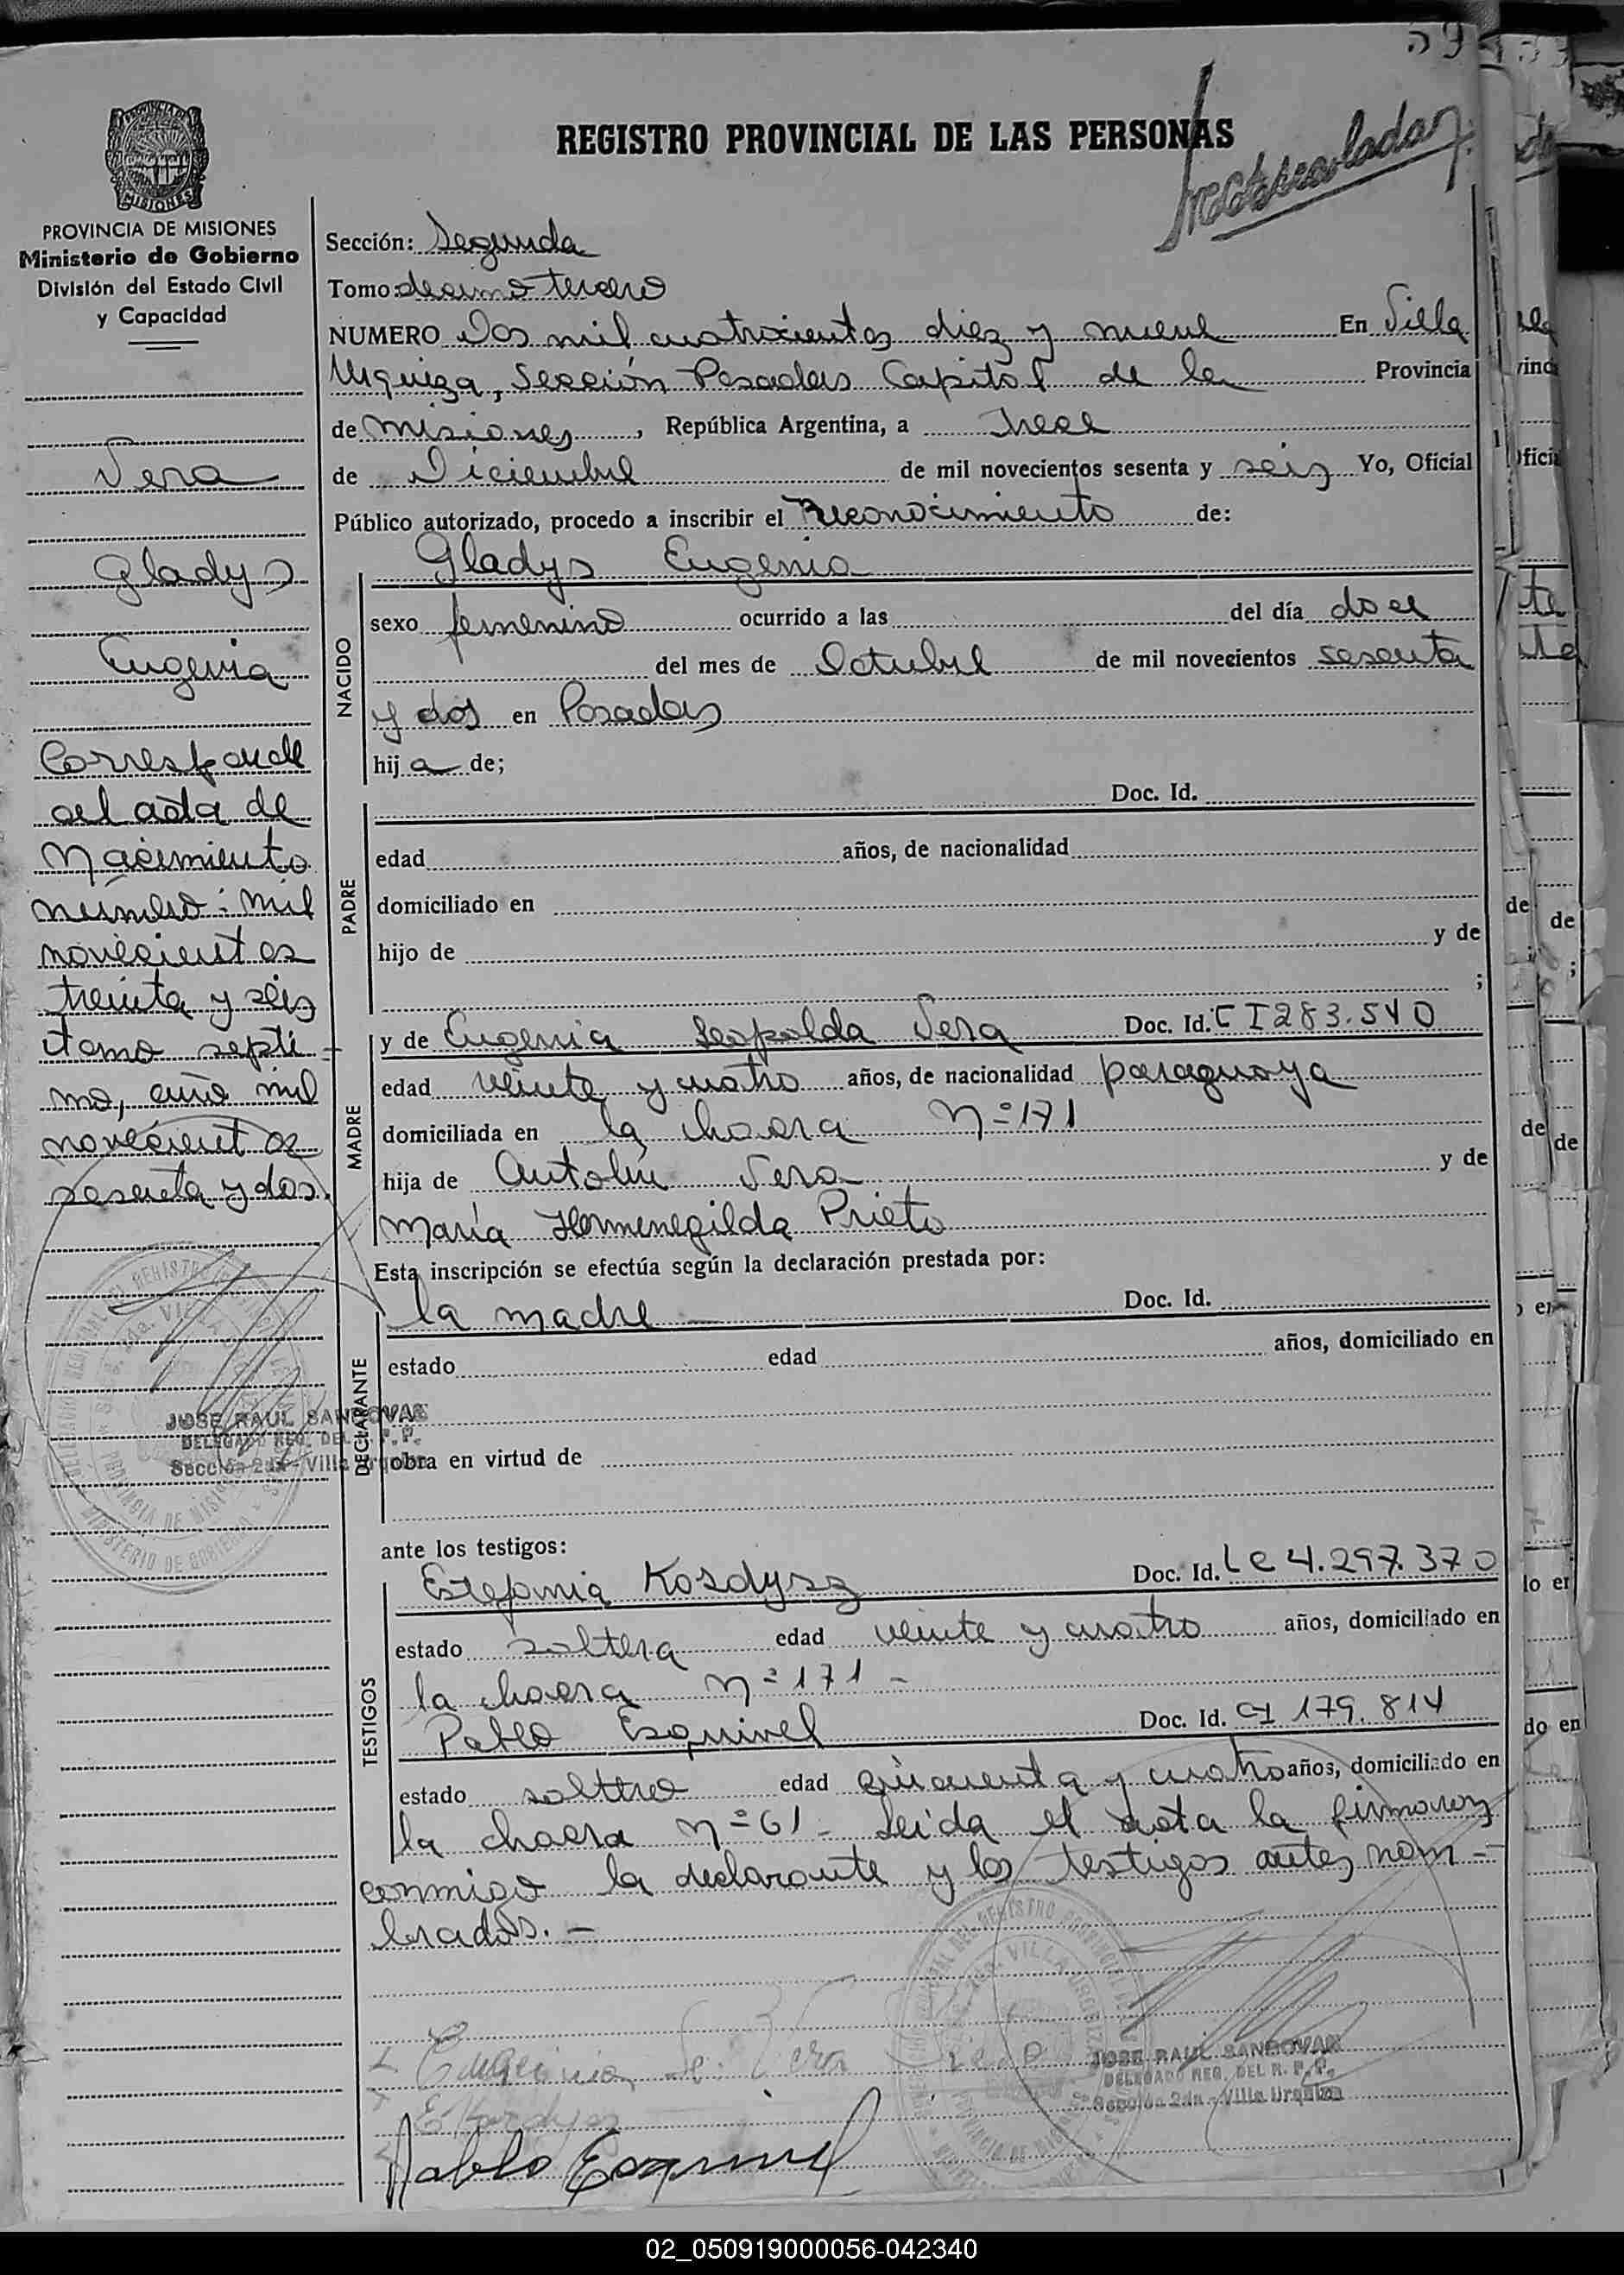 59
REGISTRO PROVINCIAL DE LAS PERSONAS
MISIONES
PROVINCIA DE MISIONES
Ministerio de Gobierno
División del Estado Civil
y Capacidad
Vera
Gladys
Eugenia
Corresponde
al acta de
Nacimiento
número: mil
novecientos
treinta y seis
tomo septi-
mo, año mil
novecientos
sesenta y dos.
JOSE RAUL SANDOVAL
DELEGADO REG. DEL R. P. P.
Sección 2da - Villa Urquiza
Sección: Segunda
Tomo: decimo tercero
NUMERO Dos mil cuatrocientos diez y nueve En Villa
Urquiza, Sección Posadas Capital de la Provincia
de Misiones, República Argentina, a trece
de Diciembre de mil novecientos sesenta y seis Yo, Oficial
Público autorizado, procedo a inscribir el Reconocimiento de:
Gladys Eugenia
NACIDO
sexo femenino ocurrido a las del día doce
del mes de Octubre de mil novecientos sesenta
y dos en Posadas
hija de;
PADRE
Doc. Id.
edad años, de nacionalidad
domiciliado en
hijo de y de
;
MADRE
y de Eugenia Leopolda Vera Doc. Id. C I 283.540
edad veinte y cuatro años, de nacionalidad paraguaya
domiciliada en la chacra Nº 171
hija de Antolín Vera y de
María Hermenegilda Prieto
Esta inscripción se efectúa según la declaración prestada por:
DECLARANTE
la madre - Doc. Id.
estado edad años, domiciliado en
obra en virtud de
ante los testigos:
TESTIGOS
Estefania Kosdysz Doc. Id. L e 4.297.370
estado soltera edad veinte y cuatro años, domiciliado en
la chacra nº 171 -
Pablo Esquivel Doc. Id. CI 179.814
estado soltero edad cincuenta y cuatro años, domiciliado en
la chacra nº 61 - Leida el acta la firmaron
conmigo la declarante y los testigos antes nom-
brados. -
Eugenia L. Vera
E Kosdysz
Pablo Esquivel
JOSE RAUL SANDOVAL
DELEGADO REG. DEL R. P. P.
Sección 2da - Villa Urquiza
02_050919000056-042340